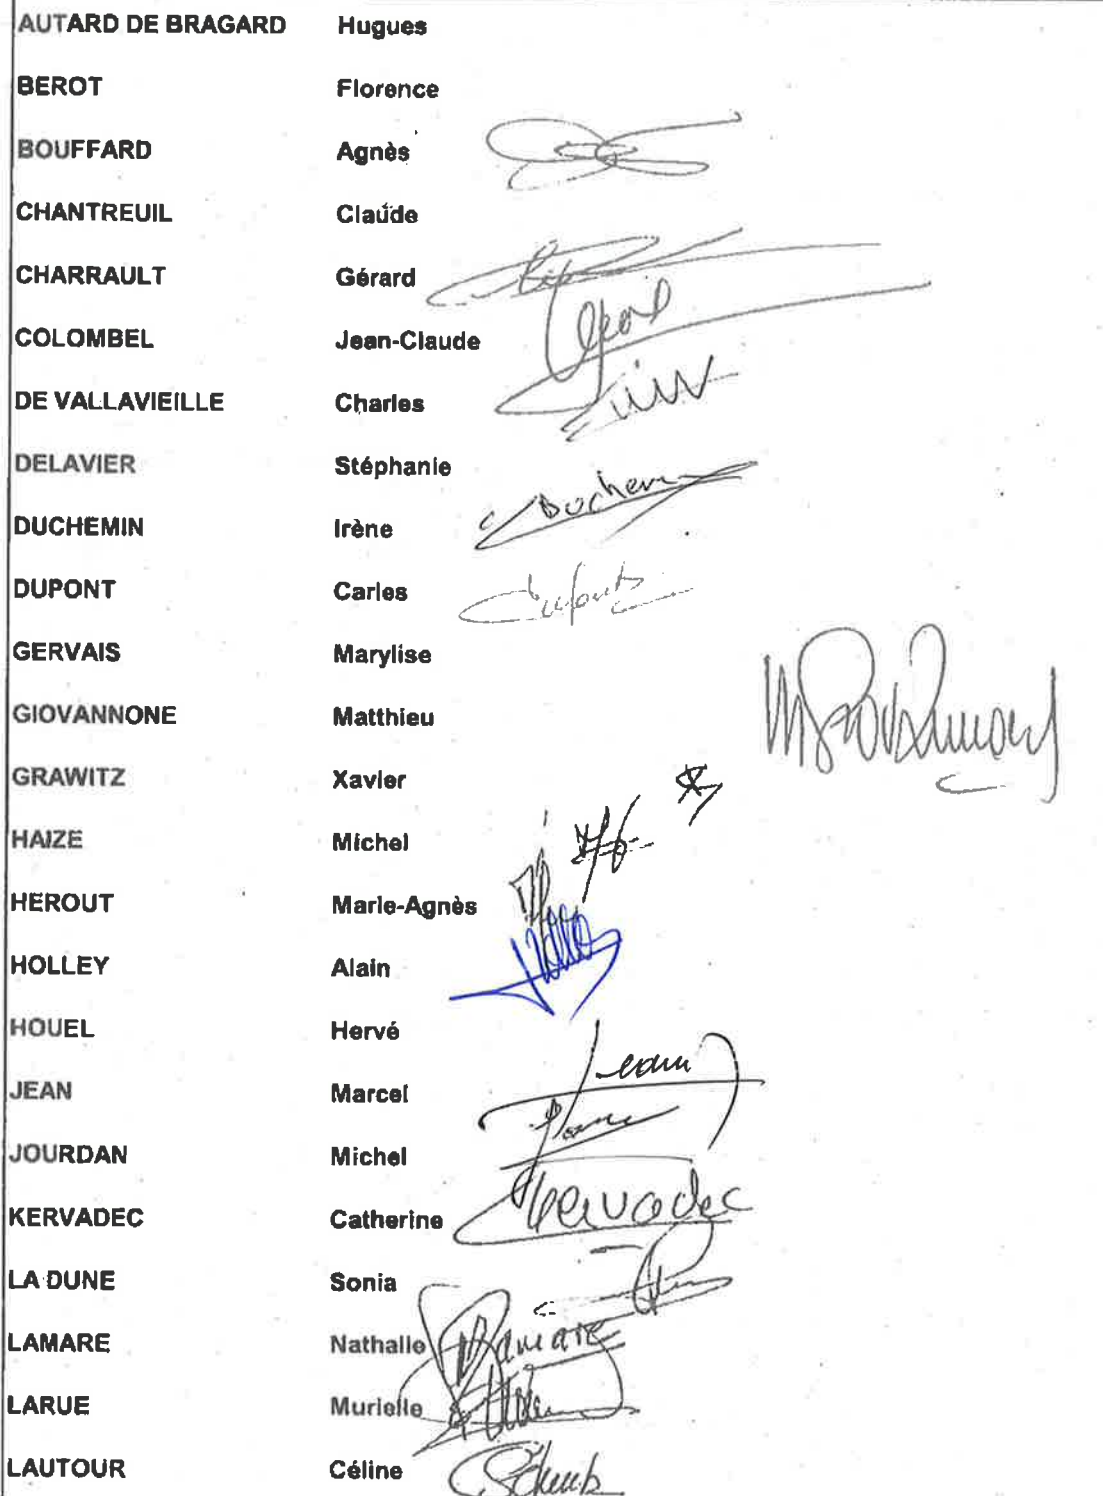 AUTARD DE BRAGARD Hugues
BEROT Florence
BOUFFARD Agnès
CHANTREUIL Claude
CHARRAULT Gérard
COLOMBEL Jean-Claude
DE VALLAVIEILLE Charles
DELAVIER Stéphanie
DUCHEMIN Irène
DUPONT Carles
GERVAIS Marylise
GIOVANNONE Matthieu
GRAWITZ Xavier
HAIZE Michel
HEROUT Marie-Agnès
HOLLEY Alain
HOUEL Hervé
JEAN Marcel
JOURDAN Michel
KERVADEC Catherine Kervadec
LA DUNE Sonia
LAMARE Nathalie Lamare
LARUE Murielle
LAUTOUR Céline